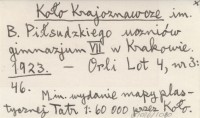 Koło Krajoznawcze im.
B. Piłsudzkiego uczniów
gimnazjum VII w Krakowie.
1923. — Orli Lot 4, nr 3:
46.
M. in. wydanie mapy plas-
tycznej Tatr 1:60 000 przez Koło.